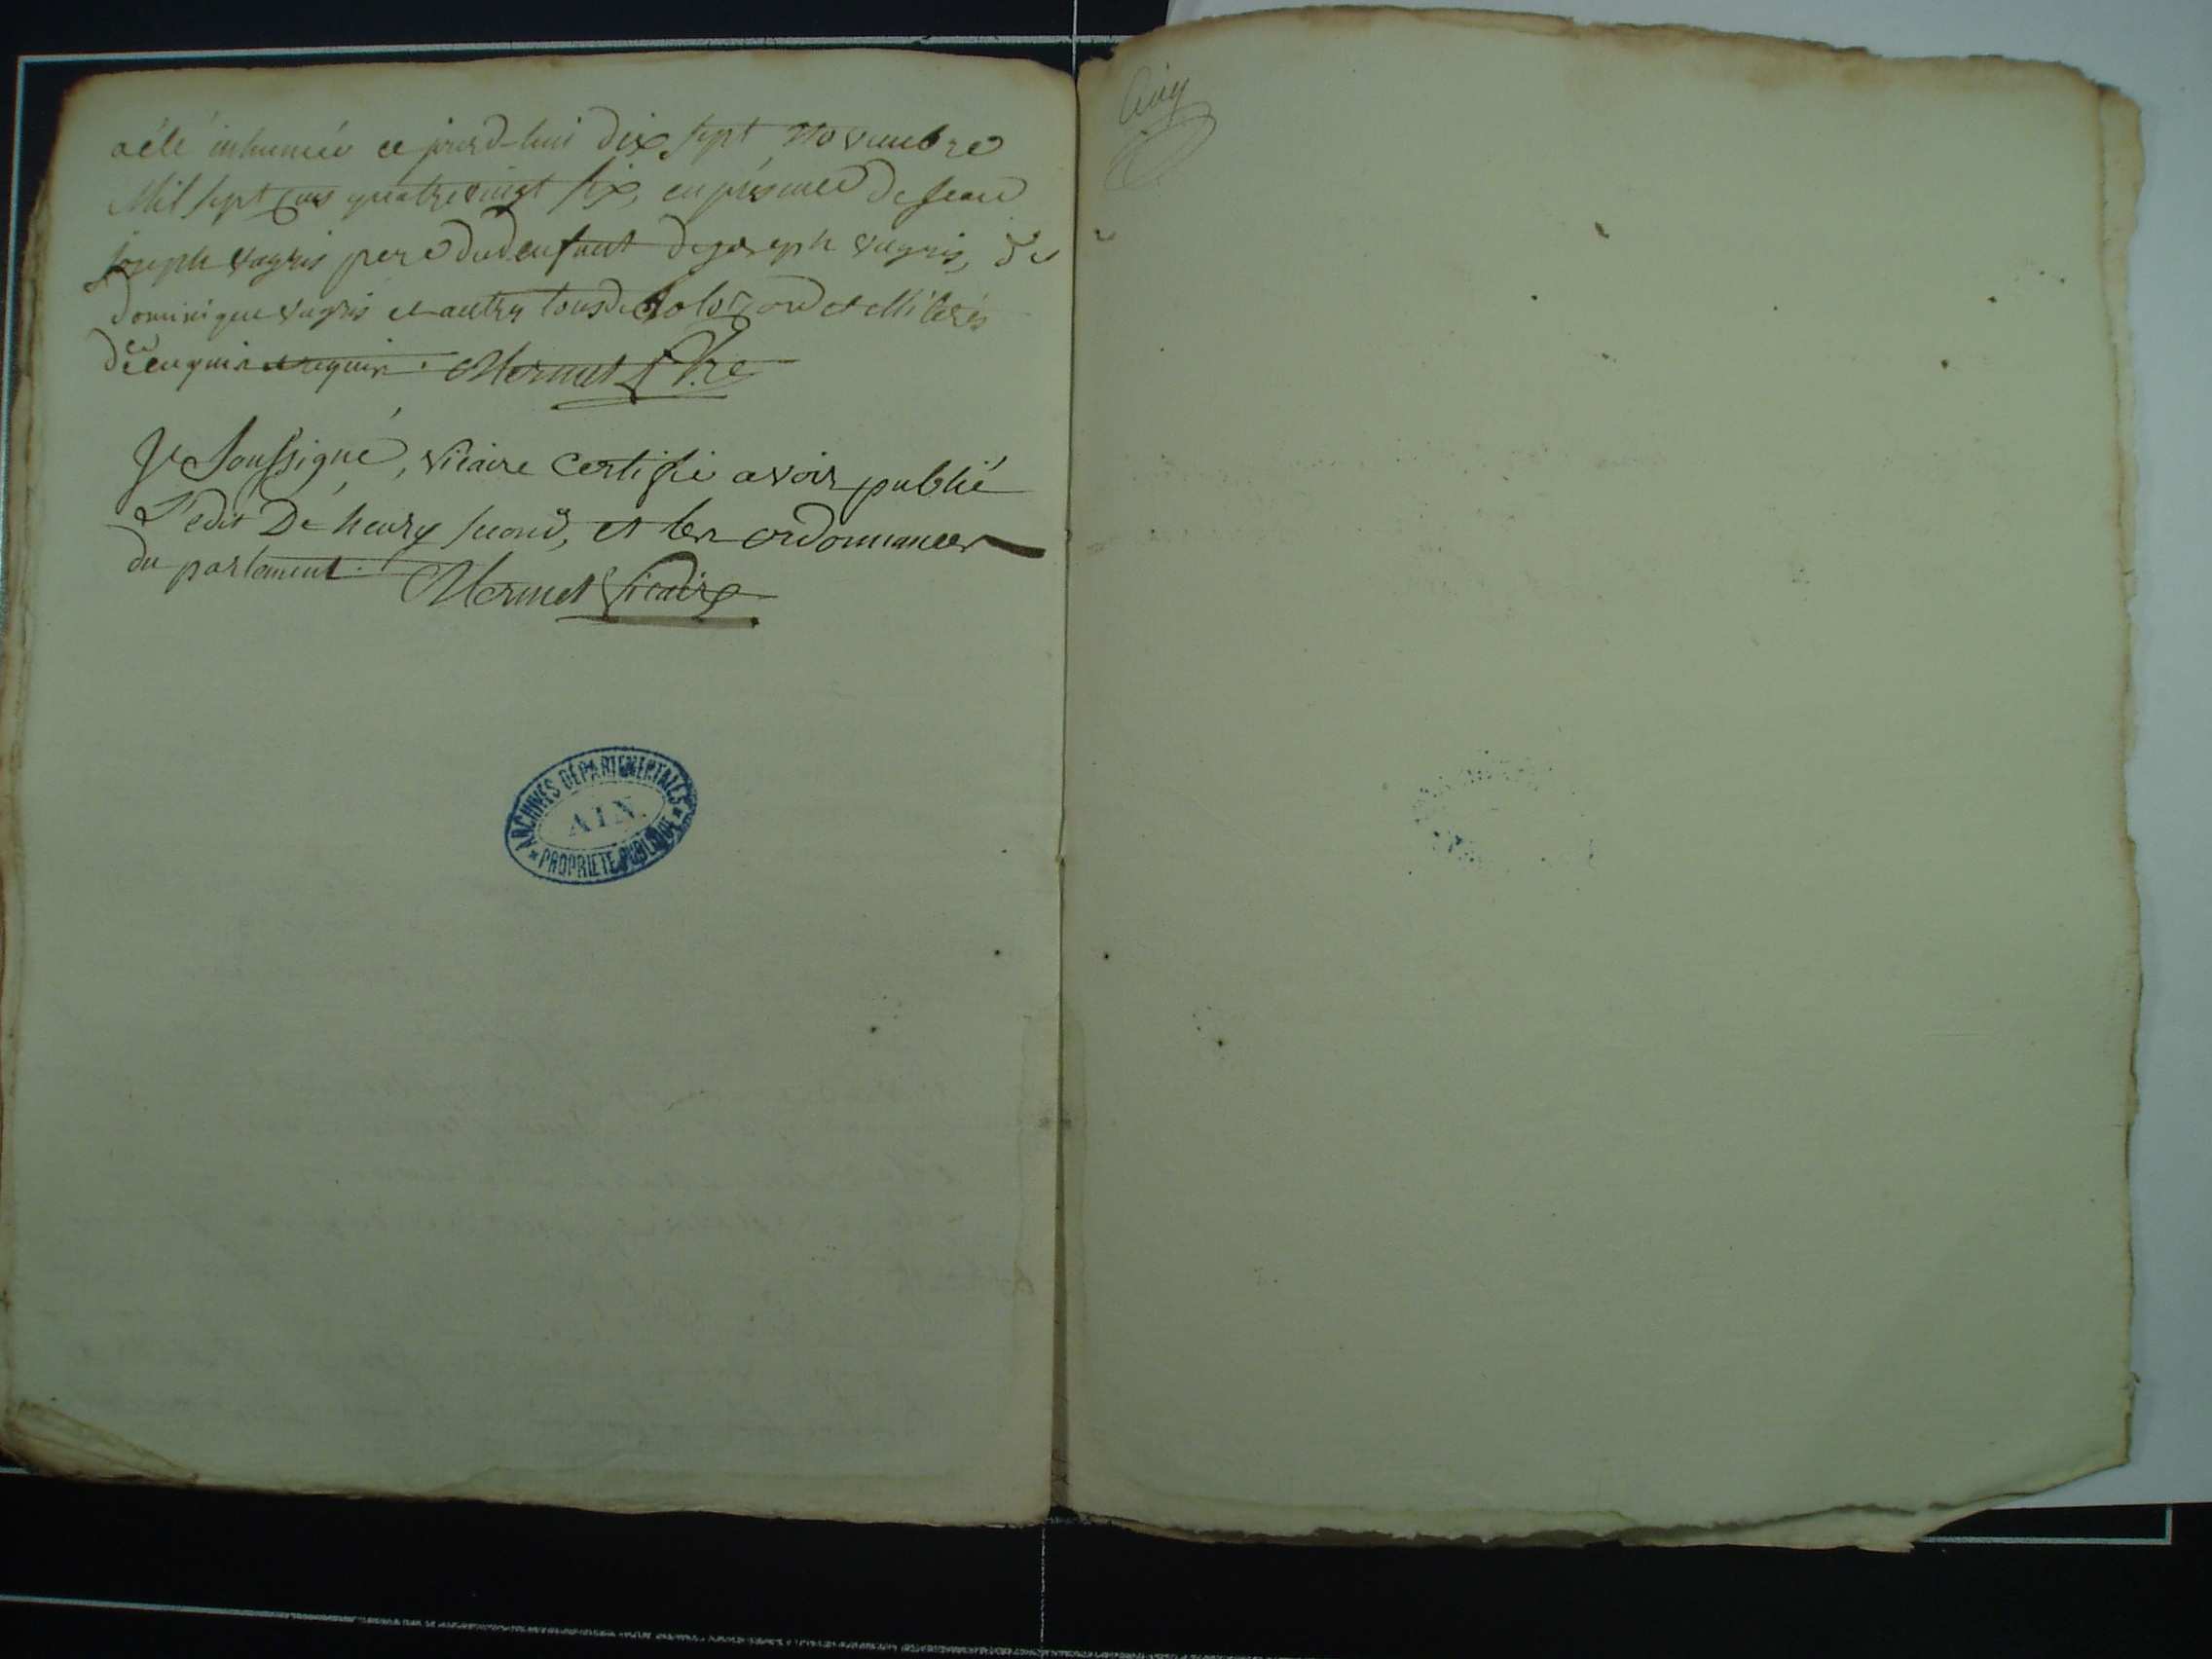 a été inhumée ce jourd-hui dix sept novembre
Mil sept cens quatrevingt six, en présence de Jean
joseph vugris pere dud enfant de joseph vugris, de
dominique vugris et autres tous de et illiterés
de ce enquis et requis. Mermet Ptre
Je Soussigné, vicaire Certifie avoir publié
L'edit De henry second, et les ordonnances
du parlement. Mermet vicaire
ARCHIVES DÉPARTEMENTALES
AIN.
PROPRIETE PUBLIQUE
Cinq